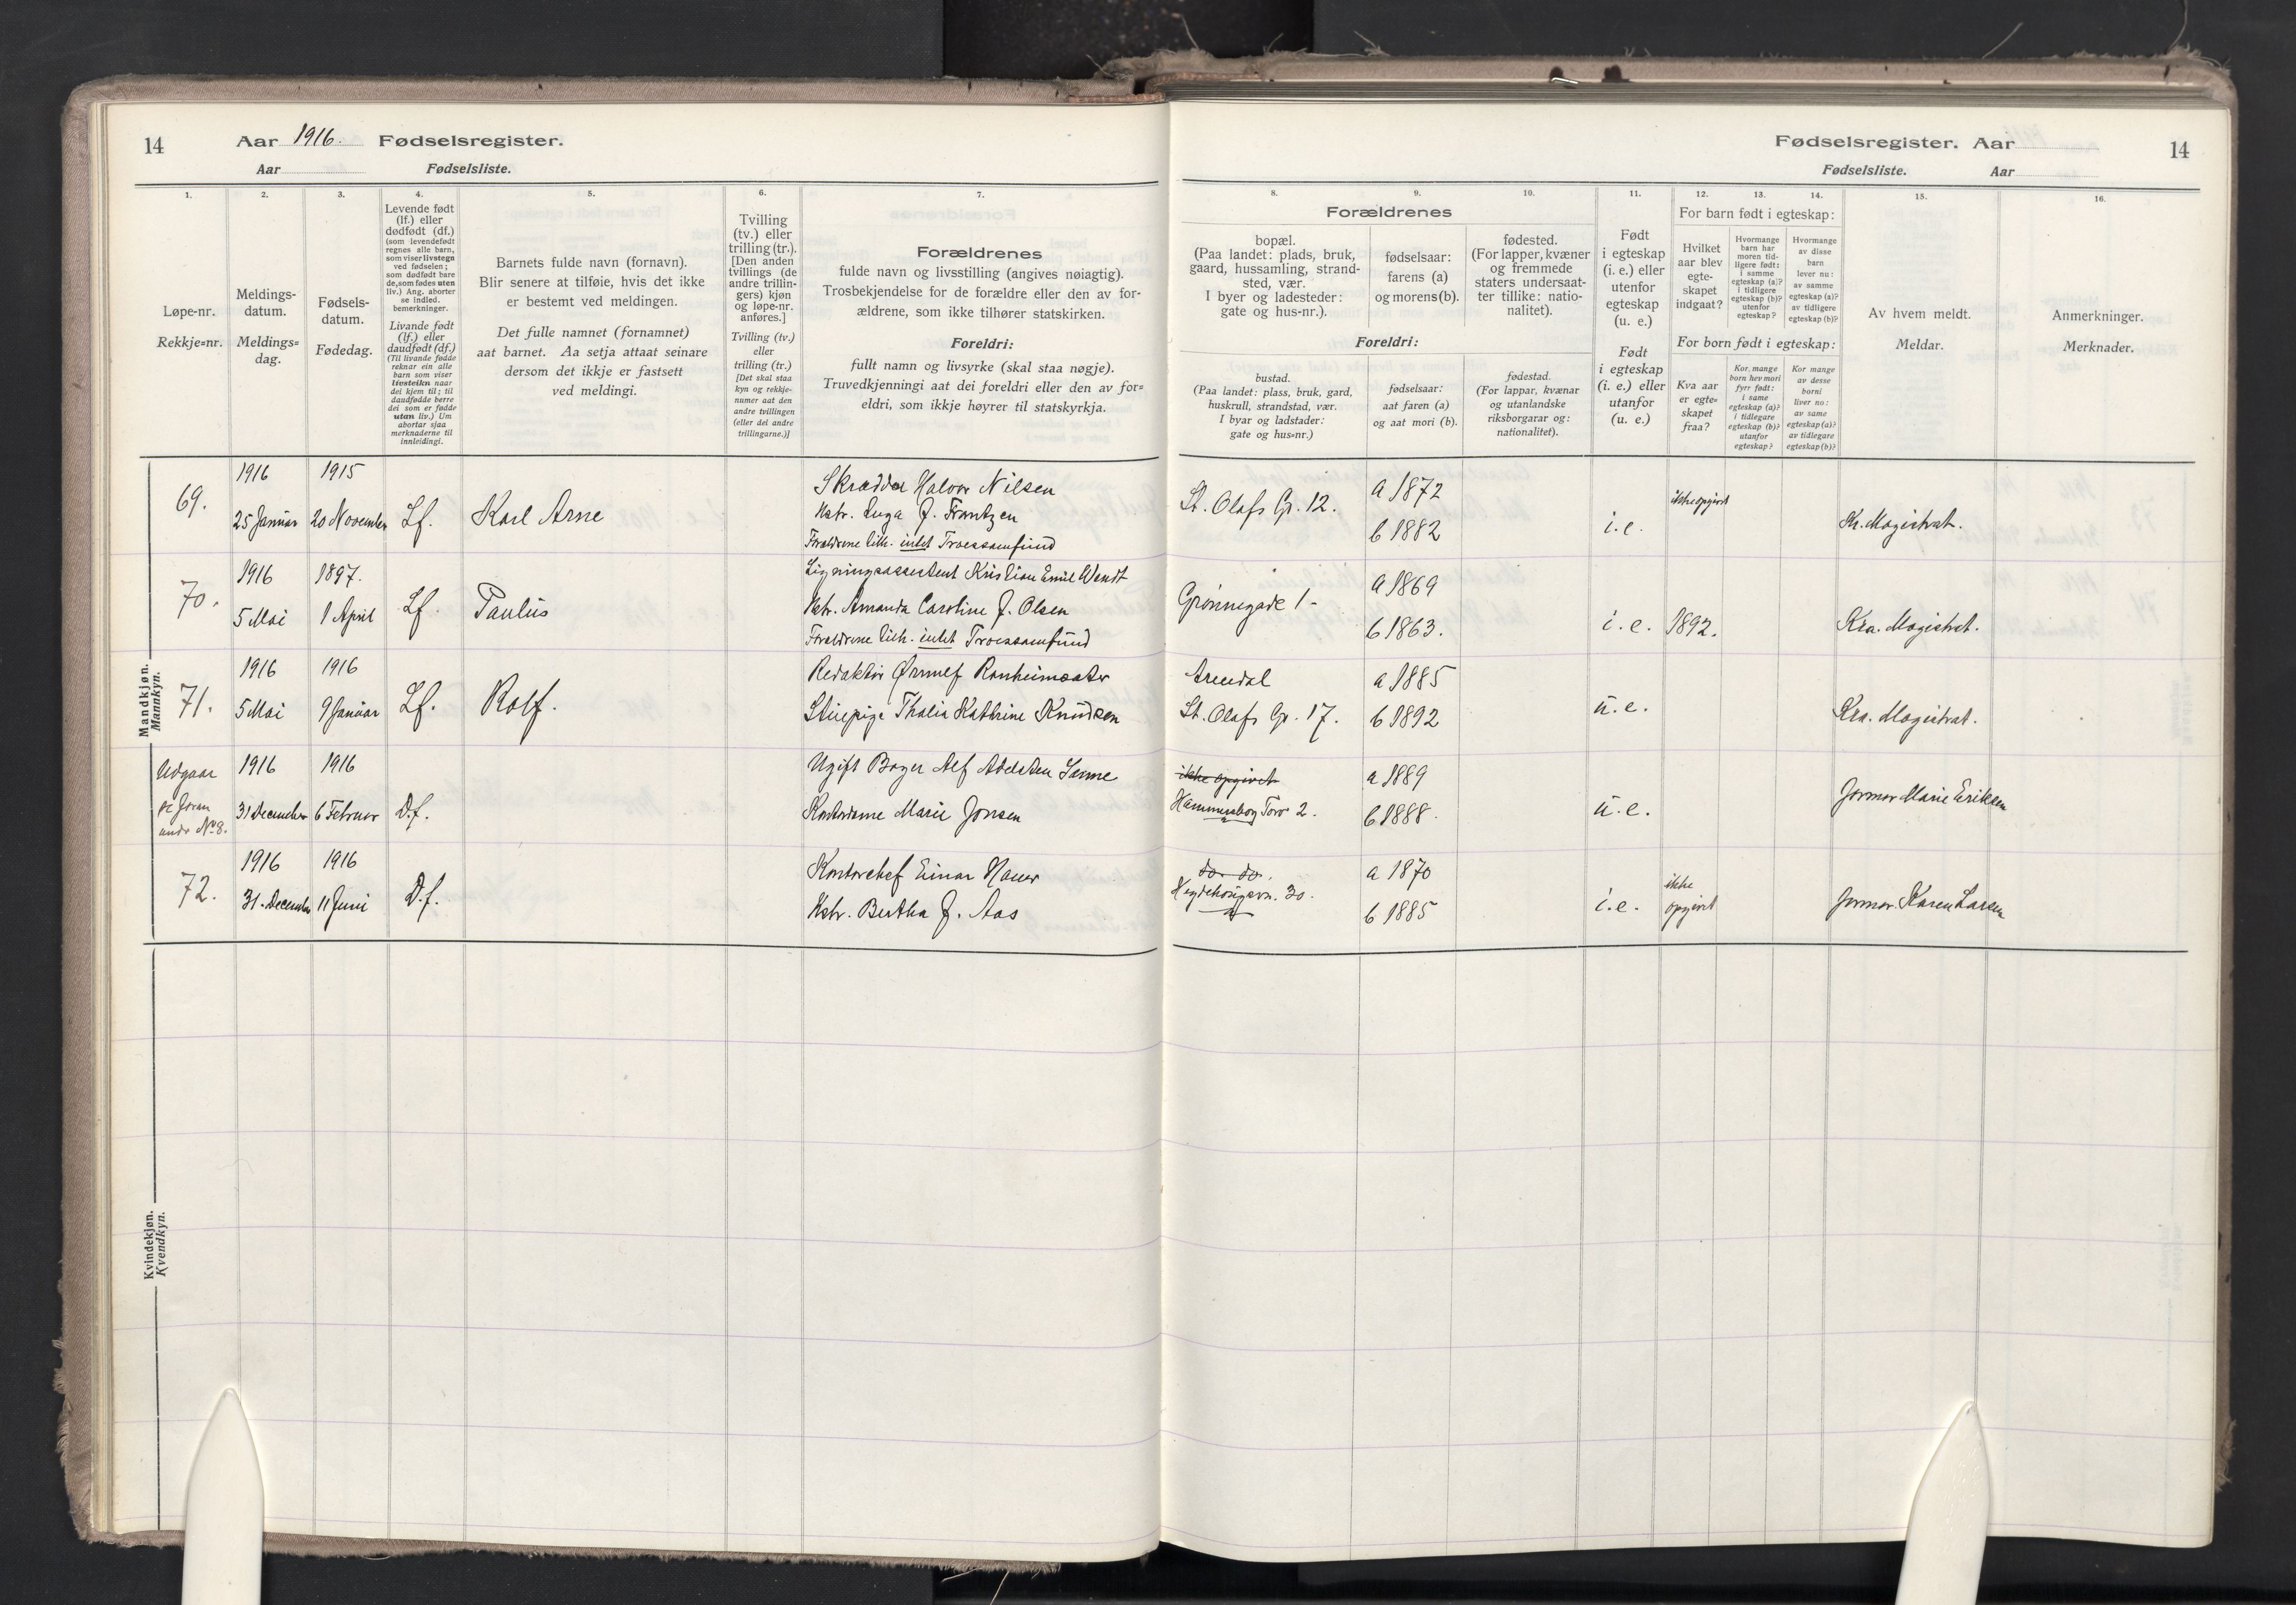 14
Aar 1916. Fødselsregister.
Aar Fødselsliste.
Fødselsregister. Aar
Fødselsliste. Aar
14
1.
Løpe-nr.
Rekkje=nr.
2.
Meldings-
datum.
Meldings=
dag.
3.
Fødsels-
datum.
Fødedag.
4.
Levende født
(lf.) eller
dødfødt (df.)
(som levendefødt
regnes alle barn,
som viser livstegn
ved fødselen;
som dødfødt bare
de, som fødes uten
liv.) Ang. aborter
se indled.
bemerkninger.
Livande født
(lf.) eller
daudfødt (df.)
(Til livande fødde
reknar ein alle
barn som viser
livsteikn naar
dei kjem til; til
daudfødde berre
dei som er fødde
utan liv.) Um
abortar sjaa
merknaderne til
innleidingi.
5.
Barnets fulde navn (fornavn).
Blir senere at tilføie, hvis det ikke
er bestemt ved meldingen.
Det fulle namnet (fornamnet)
aat barnet. Aa setja attaat seinare
dersom det ikkje er fastsett
ved meldingi.
6.
Tvilling
(tv.) eller
trilling (tr.).
[Den anden
tvillings (de
andre trillin-
gers) kjøn
og løpe-nr.
anføres.]
Tvilling (tv.)
eller
trilling (tr.)
[Det skal staa
kyn og rekkje-
numer aat den
andre tvillingen
(eller dei andre
trillingarne.)]
7.
Forældrenes
fulde navn og livsstilling (angives nøiagtig).
Trosbekjendelse for de forældre eller den av for-
ældrene, som ikke tilhører statskirken.
Foreldri:
fullt namn og livsyrke (skal staa nøgje).
Truvedkjenningi aat dei foreldri eller den av for=
eldri, som ikkje høyrer til statskyrkja.
8.
Forældrenes
bopæl.
(Paa landet: plads, bruk,
gaard, hussamling, strand-
sted, vær.
I byer og ladesteder:
gate og hus-nr.).
Foreldri:
bustad.
(Paa landet: plass, bruk, gard,
huskrull, strandstad, vær.
I byar og ladstader:
gate og hus=nr.)
9.
fødselsaar:
farens (a)
og morens (b).
fødselsaar:
aat faren (a)
og aat mori (b).
10.
fødested.
(For lapper, kvæner
og fremmede
staters undersaat-
ter tillike: natio-
nalitet).
fødestad.
(For lappar, kvænar
og utanlandske
riksborgarar og:
nationalitet).
11.
Født
i egteskap
(i. e.) eller
utenfor
egteskap
(u. e.)
Født
i egteskap
(i. e.) eller
utanfor
(u. e.)
12. 13. 14.
For barn født i egteskap:
Hvilket
aar blev
egte-
skapet
indgaat?
Hvormange
barn har
moren tid-
ligere født:
i samme
egteskap (a)?
i tidligere
egteskap (b)?
utenfor
egteskap?
Hvormange
av disse
barn
lever nu:
av samme
egteskap (a)?
av tidligere
egteskap (b)?
For born født i egteskap:
Kva aar
er egte-
skapet
fraa?
Kor mange
born hev mori
fyrr født:
i same
egteskap (a)?
i tidlegare
egteskap (b)?
utanfor
egteskap?
Kor mange
av desse
borni
liver no:
av same
egteskap (a)?
av tidlegare
egteskap (b)?
15.
Av hvem meldt.
Meldar.
16.
Anmerkninger.
Merknader.
Mandkjøn.
Mannkyn.
69.
1916
25 Januar
1915
20 November
Lf.
Karl Arne
Skrædder Halvor Nilsen
Hstr. Inga F. Frantzen
Forældrene tilh. intet Troessamfund
St. Olafs G. 12.
a 1872
b 1882
i. e.
ikke opgivet
Kr. Magistrat.
70.
1916
5 Mai
1897.
1 April
Lf.
Paulus
Ligningsassistent Kristian Emil Wendt
Hstr. Amanda Caroline F. Olsen
Forældrene tilh. intet Troessamfund
Grønnegade 1-
a 1869
b 1863.
i. e.
1892.
Kra. Magistrat.
71.
1916
5 Mai
1916
9 Januar
Lf.
Rolf.
Redaktør Ørnulf Ronheimsæter
Stuepige Thalia Kathrine Knudsen
Arendal
St. Olafs G. 17.
a 1885
b 1892
u. e.
Kra. Magistrat.
Udgaar
se foran
under No 8.
1916
31 December
1916
6 Februar
D.f.
Ugift Bager Alf Adelsten
Kontordame Marie Jonsen
ikke opgivet
Hammersborg Torv 2.
a 1889
b 1888.
u. e.
Jormor Marie Eriksen
72.
1916
31. December
1916
11 Juni
D.f.
Kontorchef Einar Hauer
Hstr. Bertha F. Aas
do. do.
Hegdehaugsvn. 30.
a 1870
b 1885
i. e.
ikke
opgivet
Jormor Karen Larsen
Kvindekjøn.
Kvendkyn.